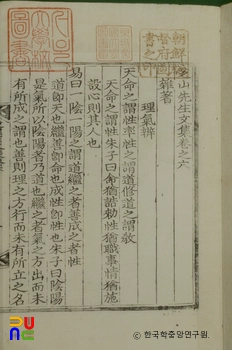 山先生文集卷之六
雜著
理氣辨
天命之謂性率性之謂道修道之謂敎
天命之謂性朱子曰命猶誥勅性猶職事情猶施
設心則其人也
易曰一陰一陽之謂道繼之者善成之者性
道卽天也繼善卽命也成性卽性也朱子曰陰陽
是氣所以陰陽者乃道也繼之者氣之方出而未
有所成之謂也善則理之方行而未有所立之名
朝鮮
督府圖
書之印
圖書
한국학중앙연구원